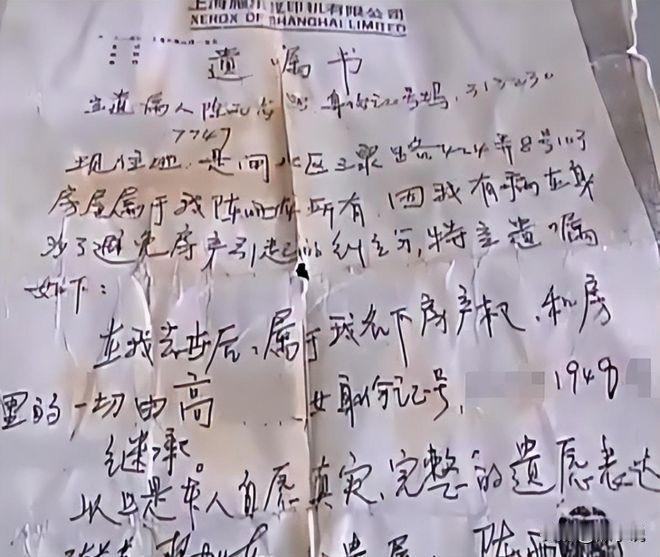 上海施乐复印机有限公司
XEROX OF SHANGHAI LIMITED
遗嘱书
立遗嘱人陈 身份证号码,313230
7747
现住地是闸北区 路424弄8号1103
房屋属于我陈 所有,因我有病在身
为了避免房产引起的纠纷,特立遗嘱
如下:
在我去世后,属于我名下房产权,和房
里的一切由高 女身份证号, 1948
继承。
以上是本人自愿真实、完整的遗愿表达